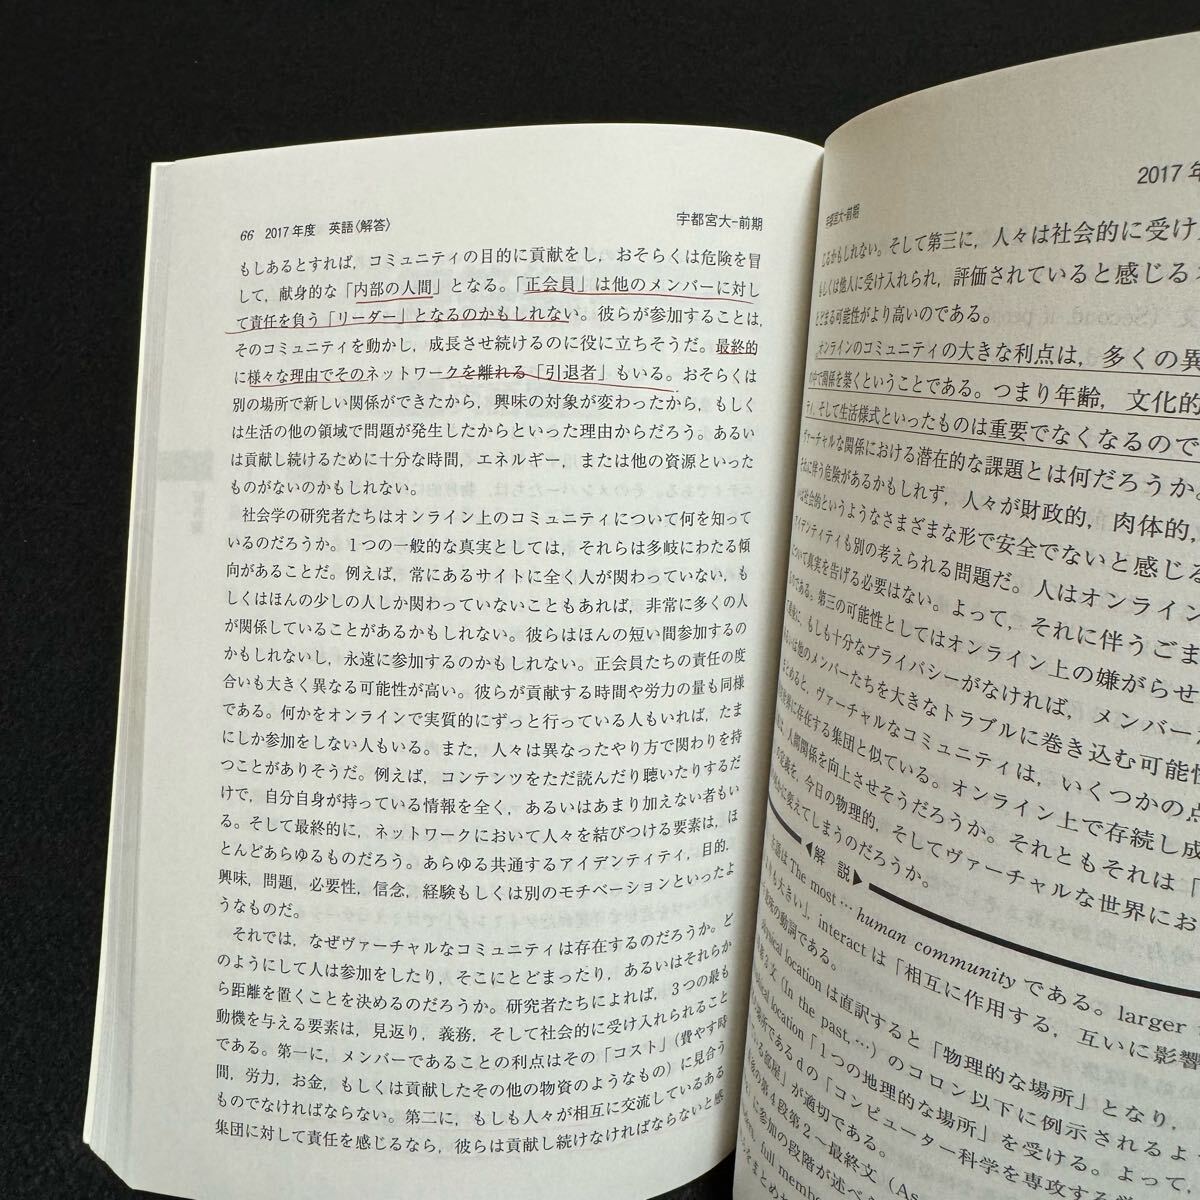 66 2017年度 英語〈解答〉 宇都宮大-前期
もしあるとすれば，コミュニティの目的に貢献をし，おそらくは危険を冒
して，献身的な「内部の人間」となる。「正会員」は他のメンバーに対し
て責任を負う「リーダー」となるのかもしれない。彼らが参加することは，
そのコミュニティを動かし，成長させ続けるのに役に立ちそうだ。最終的
に様々な理由でそのネットワークを離れる「引退者」もいる。おそらくは
別の場所で新しい関係ができたから，興味の対象が変わったから，もしく
は生活の他の領域で問題が発生したからといった理由からだろう。あるい
は貢献し続けるために十分な時間，エネルギー，または他の資源といった
ものがないのかもしれない。
社会学の研究者たちはオンライン上のコミュニティについて何を知って
いるのだろうか。1つの一般的な真実としては，それらは多岐にわたる傾
向があることだ。例えば，常にあるサイトに全く人が関わっていない，も
しくはほんの少しの人しか関わっていないこともあれば，非常に多くの人
が関係していることがあるかもしれない。彼らはほんの短い間参加するの
かもしれないし，永遠に参加するのかもしれない。正会員たちの責任の度
合いも大きく異なる可能性が高い。彼らが貢献する時間や労力の量も同様
である。何かをオンラインで実質的にずっと行っている人もいれば，たま
にしか参加をしない人もいる。また，人々は異なったやり方で関わりを持
つことがありそうだ。例えば，コンテンツをただ読んだり聴いたりするだ
けで，自分自身が持っている情報を全く，あるいはあまり加えない者もい
る。そして最終的に，ネットワークにおいて人々を結びつける要素は，ほ
とんどあらゆるものだろう。あらゆる共通するアイデンティティ，目的，
興味，問題，必要性，信念，経験もしくは別のモチベーションといったよ
うなものだ。
それでは，なぜヴァーチャルなコミュニティは存在するのだろうか。ど
のようにして人は参加をしたり，そこにとどまったり，あるいはそれらか
ら距離を置くことを決めるのだろうか。研究者たちによれば，3つの最も
動機を与える要素は，見返り，義務，そして社会的に受け入れられること
である。第一に，メンバーであることの利点はその「コスト」（費やす時
間，労力，お金，もしくは貢献したその他の物資のようなもの）に見合う
ものでなければならない。第二に，もしも人々が相互に交流しているある
集団に対して責任を感じるなら，彼らは貢献し続けなければならないと感
宇都宮大-前期 2017年
じるかもしれない。そして第三に，人々は社会的に受け
もしくは他人に受け入れられ，評価されていると感じる
とどまる可能性がより高いのである。
オンラインのコミュニティの大きな利点は，多くの異
の中で関係を築くということである。つまり年齢，文化的
ティ，そして生活様式といったものは重要でなくなるので
ヴァーチャルな関係における潜在的な課題とは何だろうか。
それに伴う危険があるかもしれず，人々が財政的，肉体的，
は社会的というようなさまざまな形で安全でないと感じる
アイデンティティも別の考えられる問題だ。人はオンライン
ついて真実を告げる必要はない。よって，それに伴うごま
のである。第三の可能性としてはオンライン上の嫌がらせ
後に，もしも十分なプライバシーがなければ，メンバー
いは他のメンバーたちを大きなトラブルに巻き込む可能性
まとめると，ヴァーチャルなコミュニティは，いくつかの点
世界に存在する集団と似ている。オンライン上で存続し成
人間関係を向上させそうだろうか。それともそれは「
の定義を，今日の物理的，そしてヴァーチャルな世界にお
かに変えてしまうのだろうか。
◀解 説▶
主語は The most … human community である。larger
も大きい」，interact は「相互に作用する，互いに影響
意味の動詞である。
physical location は直訳すると「物理的な場所」となり，
文 (In the past, …) のコロン以下に例示されるよ
location「1つの地理的な場所」を受ける。よって，
場所であるdの「コンピューター科学を専攻する
いる部屋」が適切である。
の第4段第2～最終文 (As
に参加の段階が述べら
full member